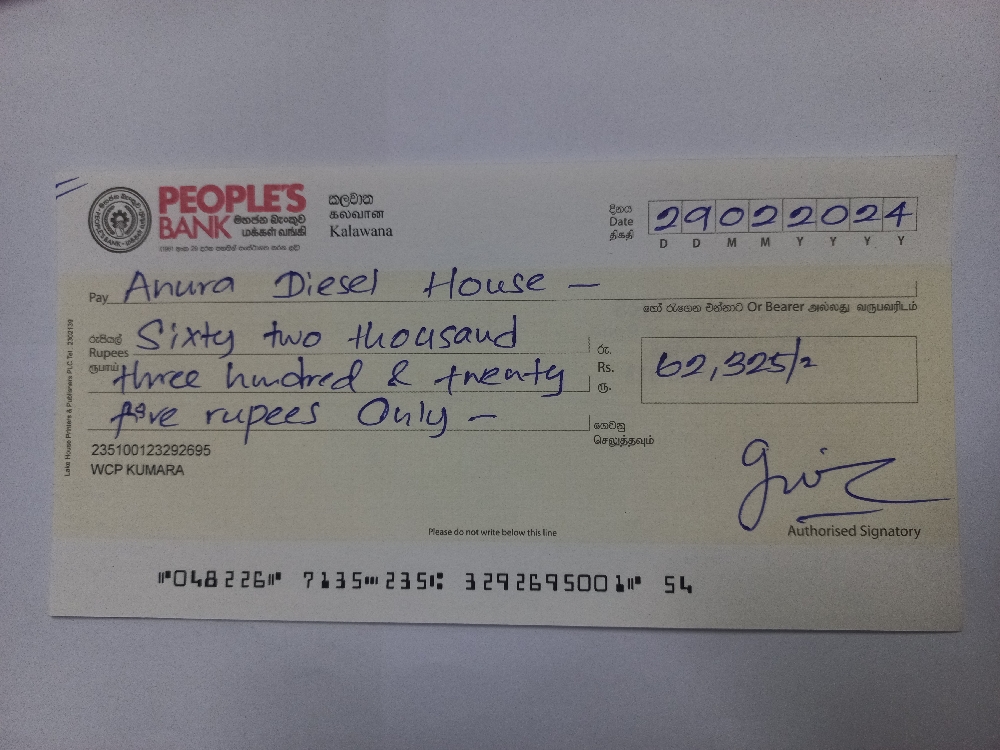 PEOPLE'S
BANK මහජන බැංකුව
மக்கள் வங்கி
කලවාන
கலவான
Kalawana
දිනය
Date
திகதி
29022024
D D M M Y Y Y Y
Pay Anura Diesel House —
හෝ රැගෙන එන්නාට Or Bearer அல்லது வருபவரிடம்
රුපියල්
Rupees
ரூபாய்
Sixty two thousand
three hundred & twenty
five rupees Only —
රු.
Rs.
ரூ.
62,325/=
ගෙවනු
செலுத்தவும்
235100123292695
WCP KUMARA
Lake House Printers & Publishers PLC Tel : 2302139
Authorised Signatory
Please do not write below this line
⑈048226⑈ 7135⑉235⑆ 3292695001⑈ 54